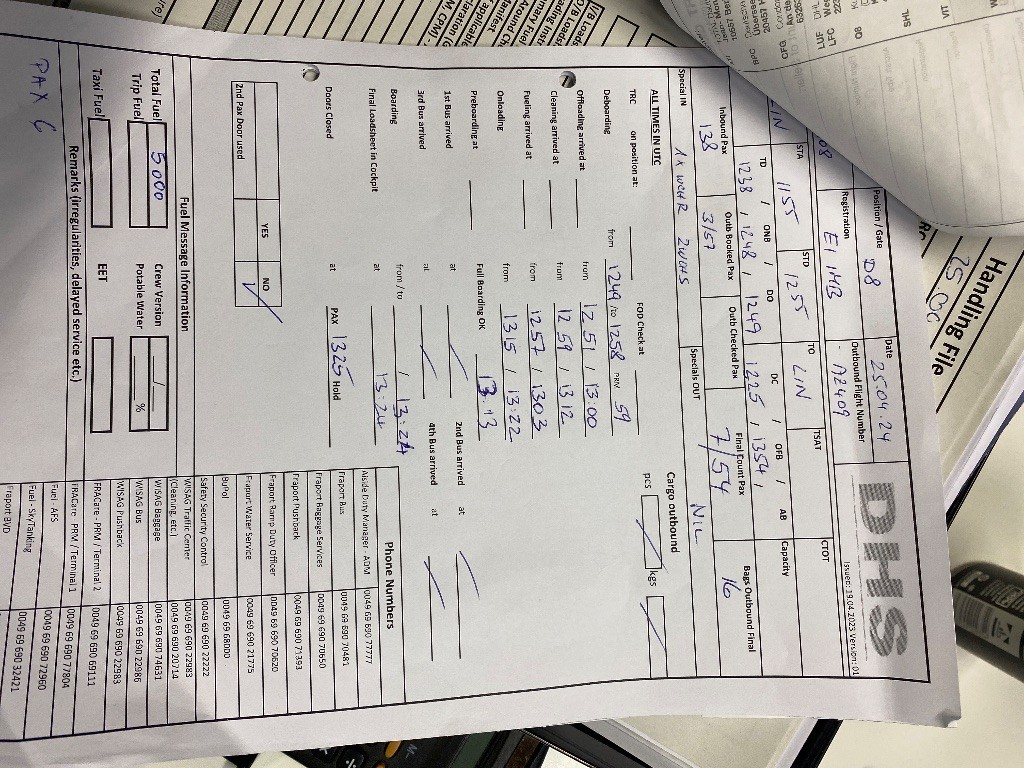 Handling File
25.
DHS
Issued: 19.04.2023 Version: 01
Position / Gate D8
Date 25.04.24
Registration EI IMB
Outbound Flight Number A2409
LIN
STA 1155
STD 1255
TO LIN
TSAT
CTOT
TD / ONB / DO / DC / OFB / AB
1238 / 1248 / 1249 / 1225 / 1354 /
Capacity
Inbound Pax 138
Outb Booked Pax 3/57
Outb Checked Pax
Final Count Pax 7/54
Bags Outbound Final 16
Special IN 1x WCHR 2WCHS
Specials OUT NIL
ALL TIMES IN UTC
Cargo outbound
pcs kgs
TRC on position at:
FOD Check at
Deboarding from 1249 to 1258 PRM 59
Offloading arrived at from 1251 / 13:00
Cleaning arrived at from 1259 / 1312
Fueling arrived at from 1257 / 1303
Onloading from 1315 / 13:22
Preboarding at Full Boarding OK 13.13
1st Bus arrived at 2nd Bus arrived at
3rd Bus arrived at 4th Bus arrived at
Boarding from / to / 13:24
Final Loadsheet in Cockpit at 13:24
Doors Closed at PAX 1325 Hold
YES NO
2nd Pax Door used
Phone Numbers
Airside Duty Manager - ADM 0049 69 690 77777
Fraport Bus 0049 69 690 70481
Fraport Baggage Services 0049 69 690 70650
Fraport Pushback 0049 69 690 71393
Fraport Ramp Duty Officer 0049 69 690 70620
Fraport Water Service 0049 69 690 21775
BuPol 0049 69 68000
Safety Security Control 0049 69 690 22222
WISAG Traffic Center 0049 69 690 22983
(Cleaning, etc.) 0049 69 690 20714
WISAG Baggage 0049 69 690 74631
WISAG Bus 0049 69 690 22986
WISAG Pushback 0049 69 690 22983
FRACare - PRM / Terminal 2 0049 69 690 69111
FRACare - PRM / Terminal 1 0049 69 690 77804
Fuel - AFS 0049 69 690 72960
Fuel - SkyTanking 0049 69 690 32421
Fraport BVD
Fuel Message Information
Total Fuel 5000
Crew Version /
Trip Fuel
Potable Water %
Taxi Fuel
EET
Remarks (irregularities, delayed service etc.)
PAX C